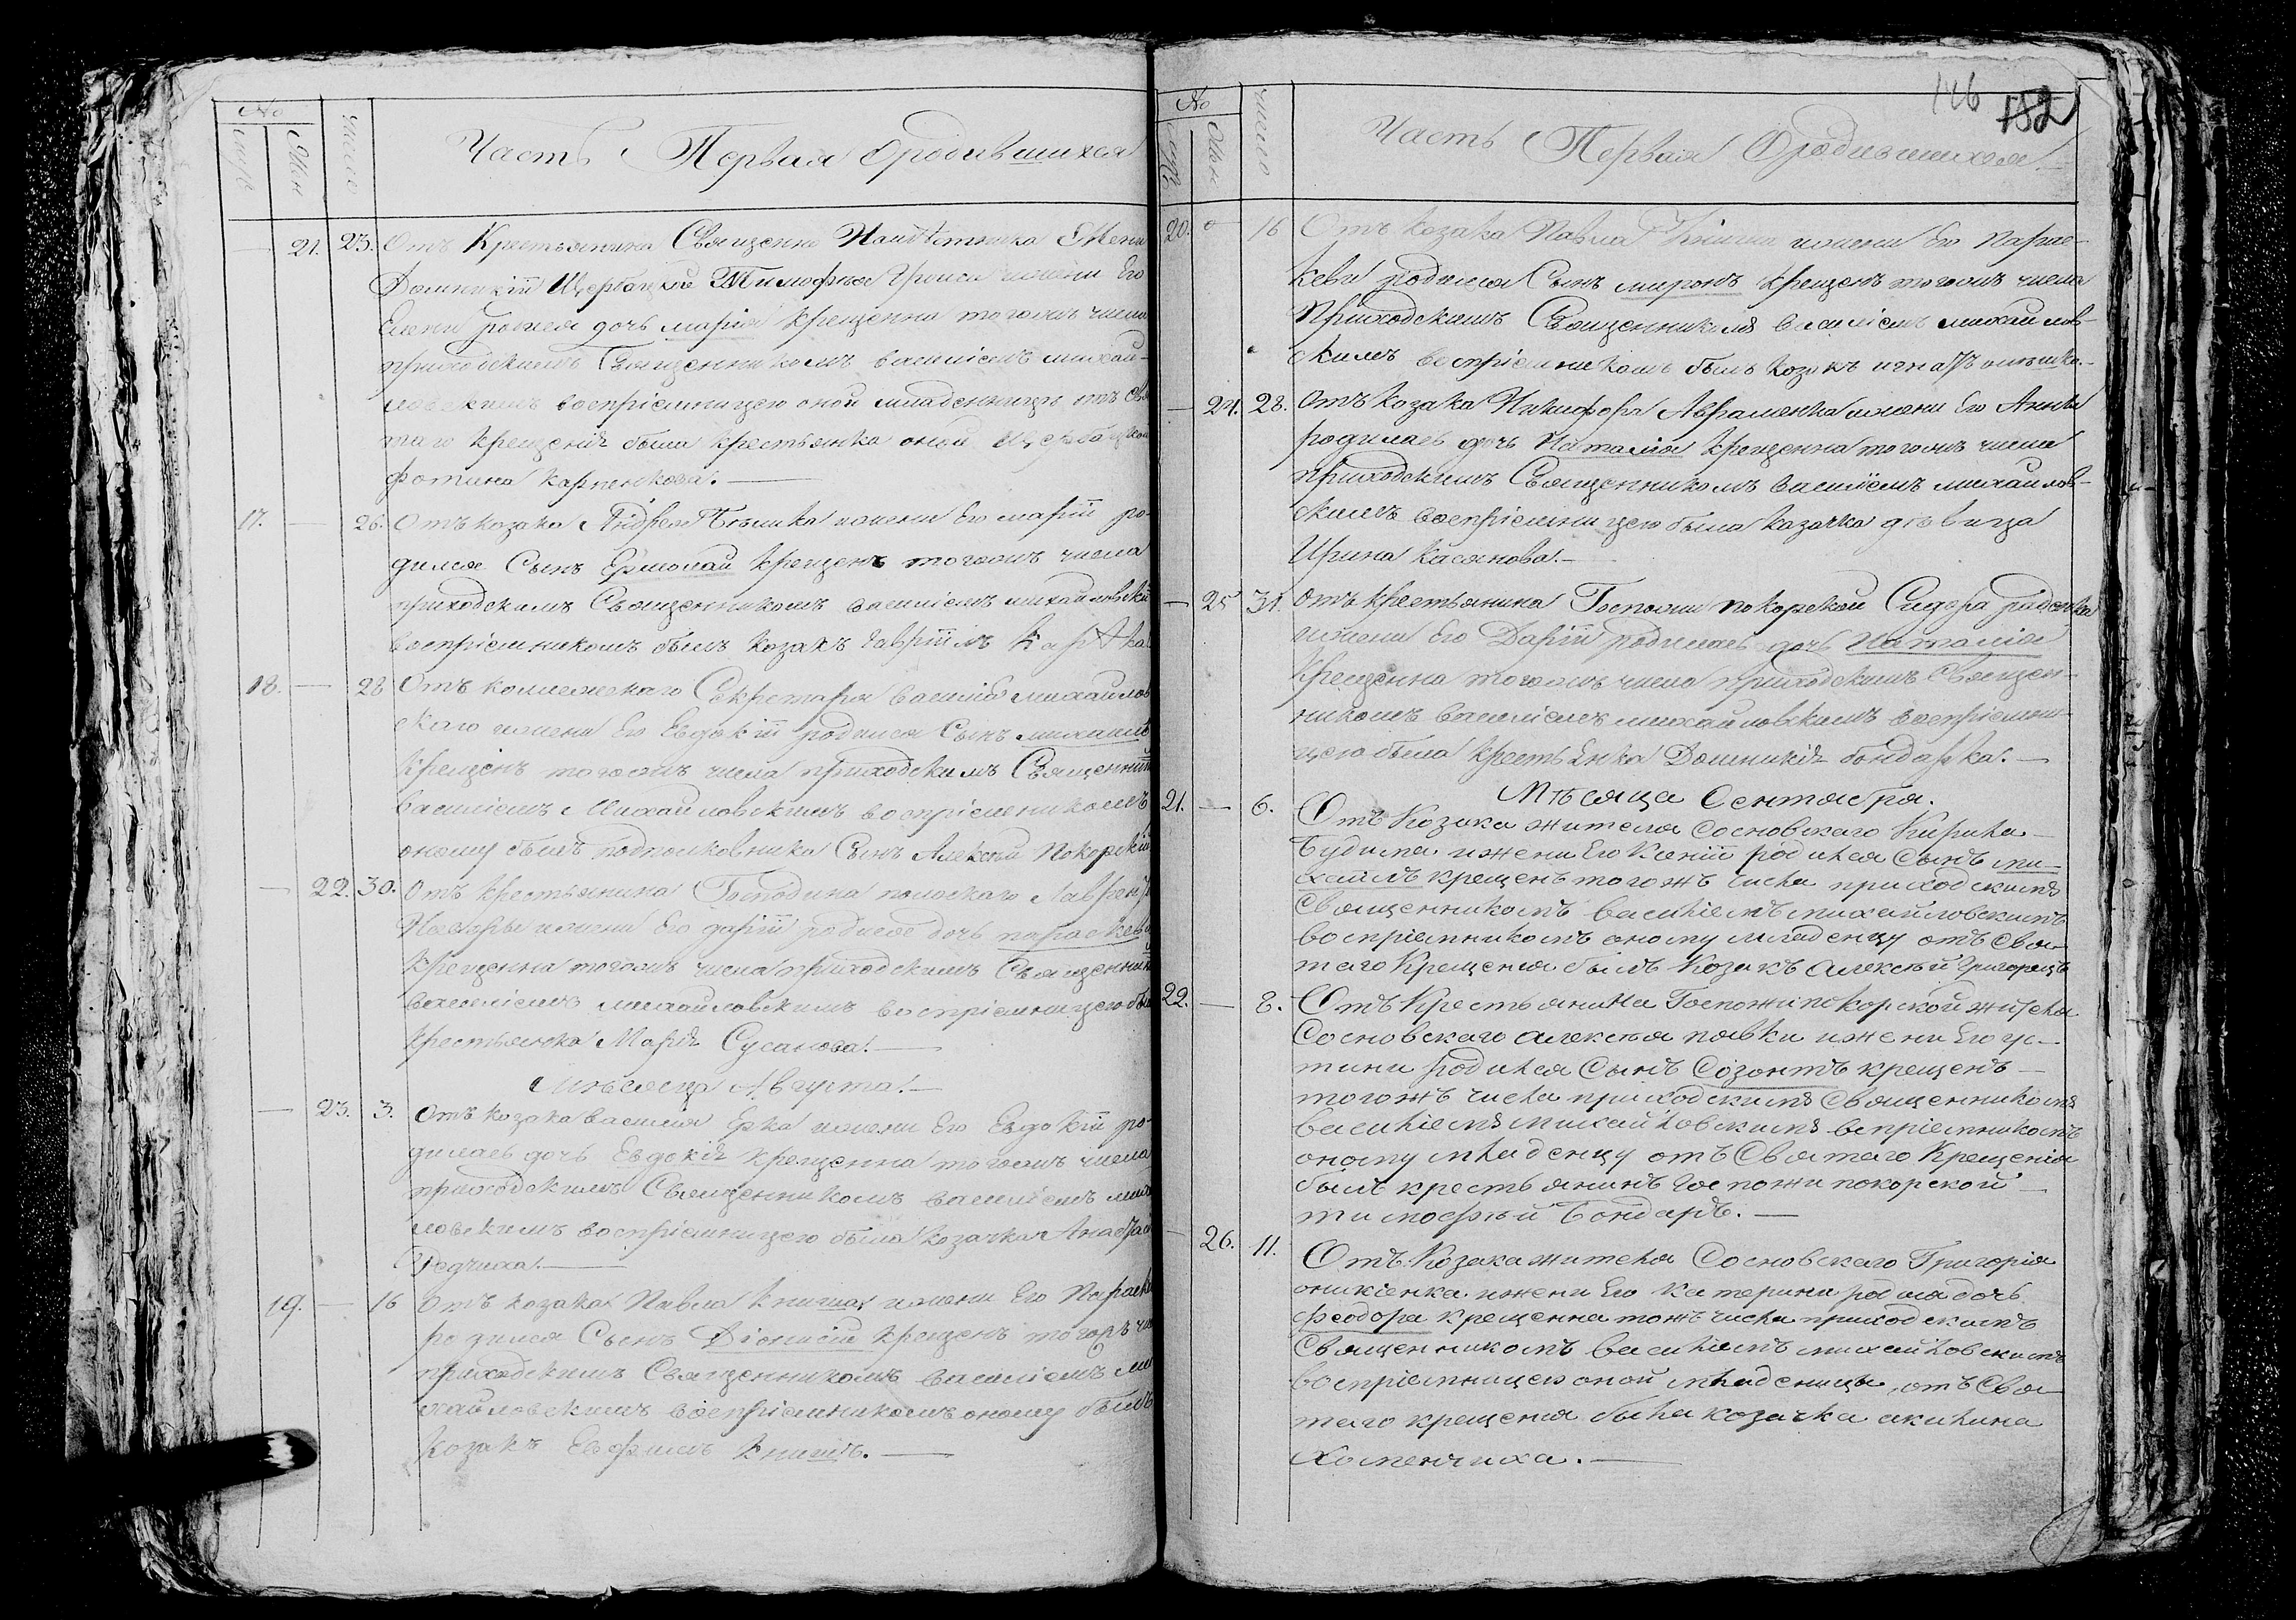 №
муж
жен
число
Часть Первая о родившихся
21. 23. Отъ Крестьянина Священно
Домникій Щербацкаго Тимофѣя жени Его
Елени родися дочь марія крещенна тогожъ числа
приходскимъ Священникомъ василіемъ михай-
ловскимъ воспріемницею оной младенницы отъ свя
таго крещенія была крестьянка оной
фотина карпенкова.
17. — 26. Отъ козака Андрея жени Его маріи ро-
дился Сынъ Ермолай крещенъ тогожъ числа
приходскимъ Священникомъ василіемъ михайловски
воспріемникомъ былъ козакъ гавріилъ
18. — 28 Отъ коллежскаго Секретаря василія михайлов
скаго жени Его Евдокіи родился Сынъ михаилъ
крещенъ тогожъ числа приходскимъ Священни
василіемъ Михайловскимъ воспріемникомъ
оному былъ подполковника Сынъ Алексѣй Покорскій
— 22. 30. Отъ крестьянина Господина полоскаго Лаврен
жени Его даріи родися дочь параскев
крещенна тогожъ числа приходскимъ Священни
василіемъ михайловскимъ воспріемницею бы
крестьянка Марія Сусанова.
Мѣсяца Августа.
— 23. 3. Отъ козака василія Ерка жени Его Евдокіи ро-
дилась дочь Евдокія крещенна тогожъ числа
приходскимъ Священникомъ василіемъ миха
ловскимъ воспріемницею была козачка
Редчиха.
19. — 16 Отъ козака Павла книша жени Его Параск
родился Сынъ Діонисій крещенъ тогожъ чи
приходскимъ Священникомъ василіемъ ми
хайловскимъ воспріемникомъ оному былъ
козакъ Евфимъ книшъ.
146 182
№
муж
жен
число
Часть Первая о родившихся
20. 16 Отъ козака Павла Книша жени Его Парас-
кеви родился Сынъ миронъ крещенъ тогожъ числа
Приходскимъ Священникомъ василіемъ михайлов-
скимъ воспріемникомъ былъ козакъ игнатъ
— 24. 28. Отъ козака Никифора Авраменка жени Его Анни
родилась дочь Наталія крещенна тогожъ числа
приходскимъ Священникомъ василіемъ михайлов-
скимъ воспріемницею была козачка дѣвица
Ирина касянова.
— 25 31. Отъ крестьянина Госпожи покорской Сидора
жени Его Даріи родилась дочь Наталія
Крещенна тогожъ числа приходскимъ Священ-
никомъ василіемъ михайловскимъ воспріемни-
цею была крестьянка Домникія бондарка.
Мѣсяца Сентября.
21. — 6. Отъ Козака жителя Сосновскаго Кирила
Будима жени Его Ксеніи родился Сынъ ми-
хаилъ крещенъ тогожъ числа приходскимъ
Священникомъ василіемъ михайловскимъ
воспріемникомъ оному младенцу отъ Свя-
таго Крещенія былъ Козакъ Алексѣй Григорецъ
22. — 8. Отъ Крестьянина Госпожи покорской жителя
Сосновскаго алексѣя пявки жени Его ус-
тини родился Сынъ Созонтъ крещенъ
тогожъ числа приходскимъ Священникомъ
василіемъ михайловскимъ вспріемникомъ
оному младенцу отъ Святаго Крещенія
былъ крестьянинъ Госпожи покорской
тимофѣй Бондаръ.
— 26. 11. Отъ Козака жителя Сосновскаго Григорія
оникіенка жени Его катерини родися дочь
феодора крещенна тожъ числа приходскимъ
Священникомъ василіемъ михайловскимъ
воспріемницею оной младеници, отъ Свя-
таго крещенія была козачка акилина
Хоменчиха.